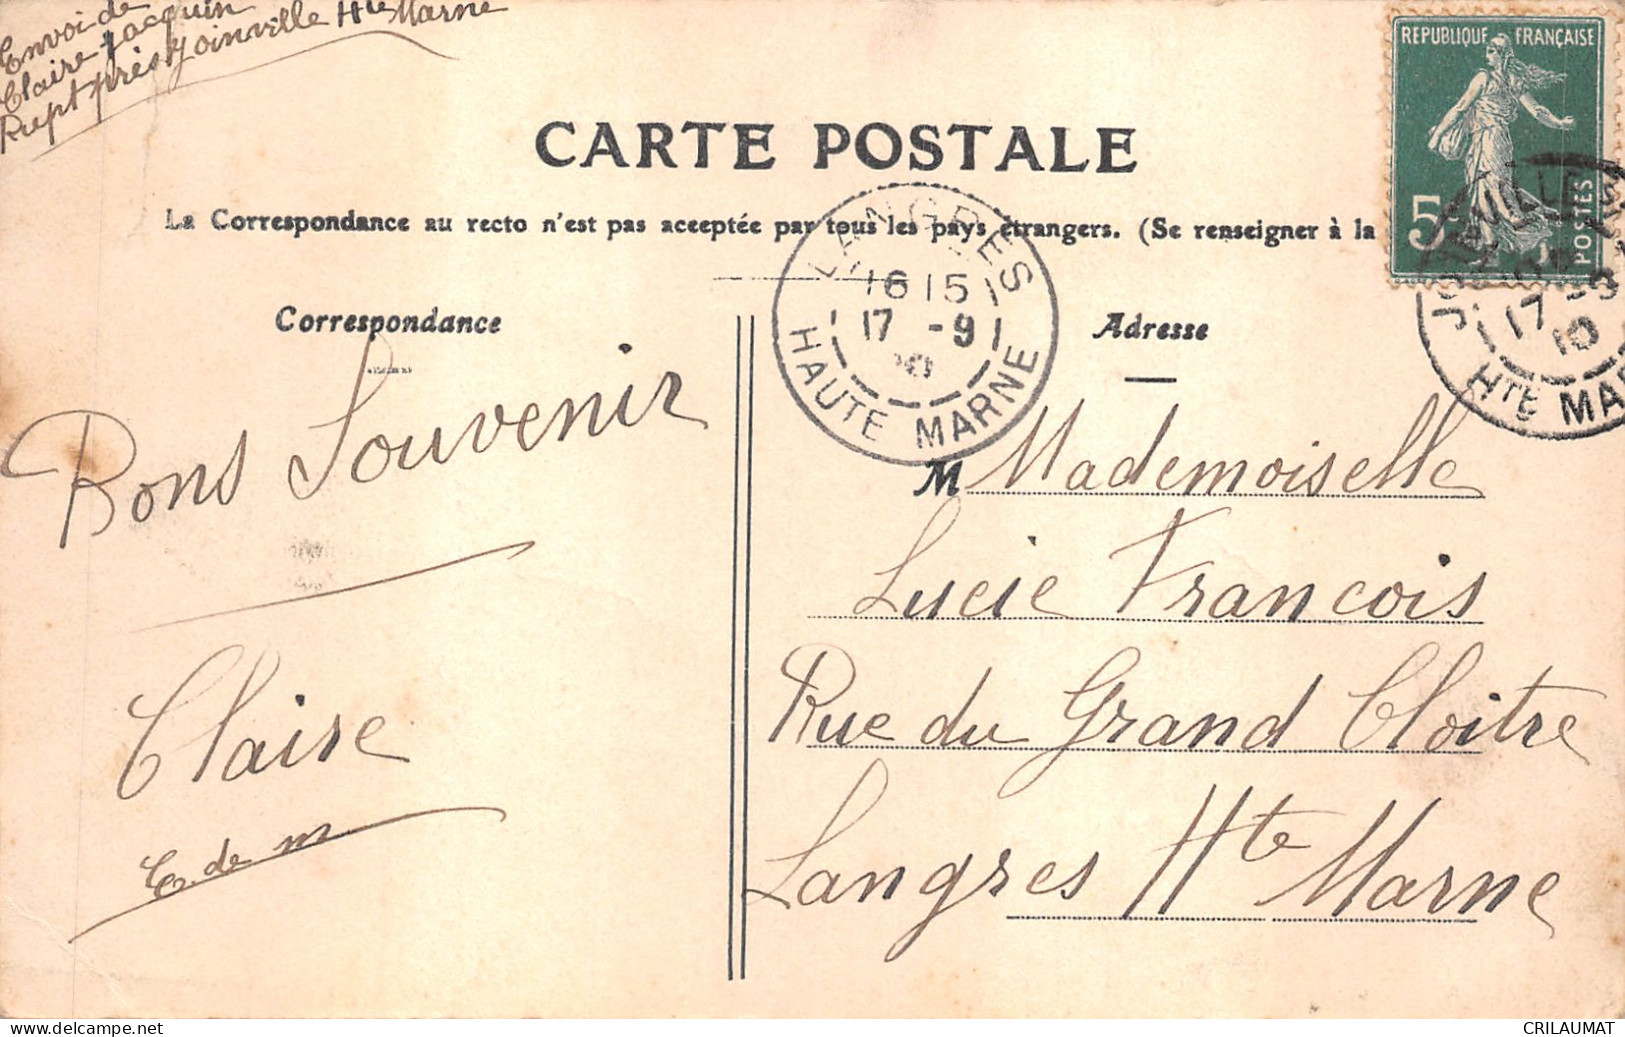 Envoi de
Claire Jacquin
Rupt près Joinville Hte Marne
REPUBLIQUE FRANÇAISE
5c
POSTES
CARTE POSTALE
La Correspondance au recto n'est pas acceptée par tous les pays étrangers. (Se renseigner à la
LANGRES
16 15
17 -9
10
HAUTE MARNE
JOINVILLE
17 -9
10
HTE MAR
Correspondance
Adresse
Bons Souvenir
Claire
E. de m
M Mademoiselle
Lucie Francois
Rue du Grand Cloitre
Langres Hte Marne
delcampe.net
CRILAUMAT